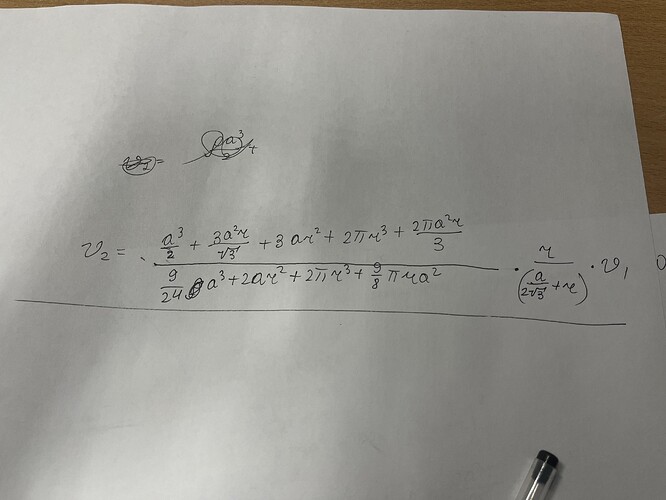 v₂ = (a³/2 + 3a²r/√3 + 3ar² + 2πr³ + 2πa²r/3) / (9/24 a³ + 2ar² + 2πr³ + 9/8 πra²) · r / (a/2√3 + r) · v₁